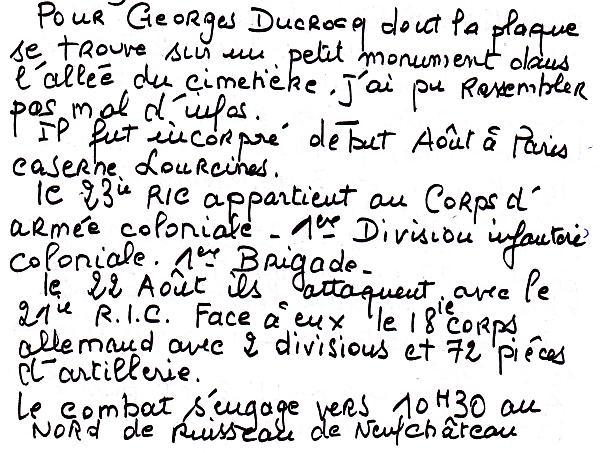 Pour Georges Ducrocq dont la plaque
se trouve sur un petit monument dans
l'allée du cimetière. J'ai pu rassembler
pas mal d'infos.
Il fut incorpré début Août à Paris
caserne Lourcines.
le 23ie RIC appartient au Corps d'
armée coloniale - 1ère Division infanterie
coloniale. 1ère Brigade -
le 22 Août ils attaquent avec le
21ie R.I.C. Face à eux le 18ie corps
allemand avec 2 divisions et 72 pièces
d'artillerie.
Le combat s'engage vers 10H30 au
NORD de ruisseau de Neufchâteau